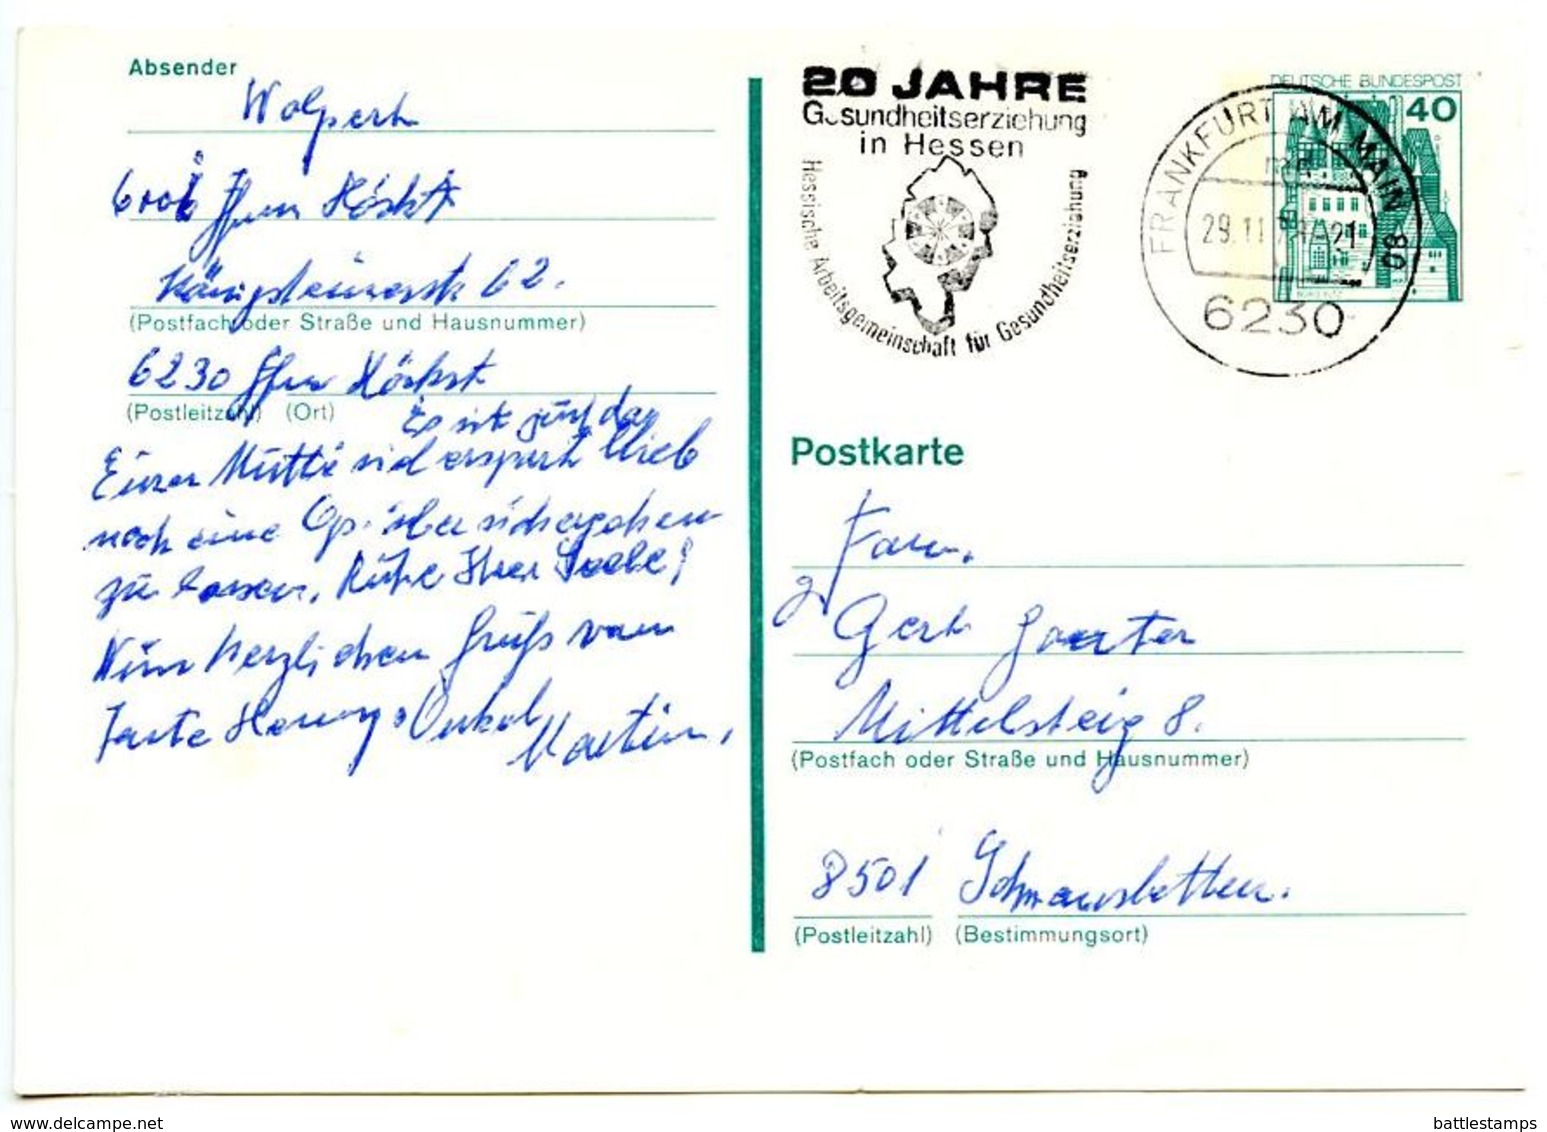 Absender
Wolpert
Höchst
Königsteinerstr 62.
(Postfach oder Straße und Hausnummer)
6230 Ffm Höchst
(Postleitzahl) (Ort)
Es ist gut das
Eurer Mutti erspart blieb
noch eine Op. über sich ergehen
zu lassen. Ruhe Ihrer Seele!
Nun herzlichen Gruß von
Tante Onkel
Martin.
20 JAHRE
Gesundheitserziehung
in Hessen
Hessische Arbeitsgemeinschaft für Gesundheitserziehung
DEUTSCHE BUNDESPOST
40
FRANKFURT AM MAIN 80
29.11.
21
6230
Postkarte
Fam.
Gert Goerter
Mittelsteig 8.
(Postfach oder Straße und Hausnummer)
8501 Schwanstetten.
(Postleitzahl) (Bestimmungsort)
www.delcampe.net
battlestamps